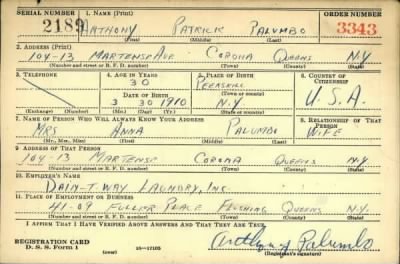 SERIAL NUMBER 1. NAME (Print) ORDER NUMBER
2189 ANTHONY PATRICK PALUMBO 3343
(First) (Middle) (Last)
2. ADDRESS (Print)
104-13 MARTENSE AVE CORONA QUEENS N.Y.
(Number and street or R. F. D. number) (Town) (County) (State)
3. TELEPHONE 4. AGE IN YEARS 5. PLACE OF BIRTH 6. COUNTRY OF CITIZENSHIP
30 PEEKSKILL
(Town or county)
DATE OF BIRTH
3 30 1910 N.Y. U.S.A.
(Exchange) (Number) (Mo.) (Day) (Yr.) (State or country)
7. NAME OF PERSON WHO WILL ALWAYS KNOW YOUR ADDRESS 8. RELATIONSHIP OF THAT PERSON
MRS ANNA PALUMBO WIFE
(Mr., Mrs., Miss) (First) (Middle) (Last)
9. ADDRESS OF THAT PERSON
104-13 MARTENSE CORONA QUEENS N.Y.
(Number and street or R. F. D. number) (Town) (County) (State)
10. EMPLOYER'S NAME
DAIN-T-WAY LAUNDRY, INC.
11. PLACE OF EMPLOYMENT OR BUSINESS
41-09 FULLER PLACE FLUSHING QUEENS N.Y.
(Number and street or R. F. D. number) (Town) (County) (State)
I AFFIRM THAT I HAVE VERIFIED ABOVE ANSWERS AND THAT THEY ARE TRUE.
REGISTRATION CARD
D. S. S. Form 1 16-17105 Anthony Palumbo
(Registrant's signature)